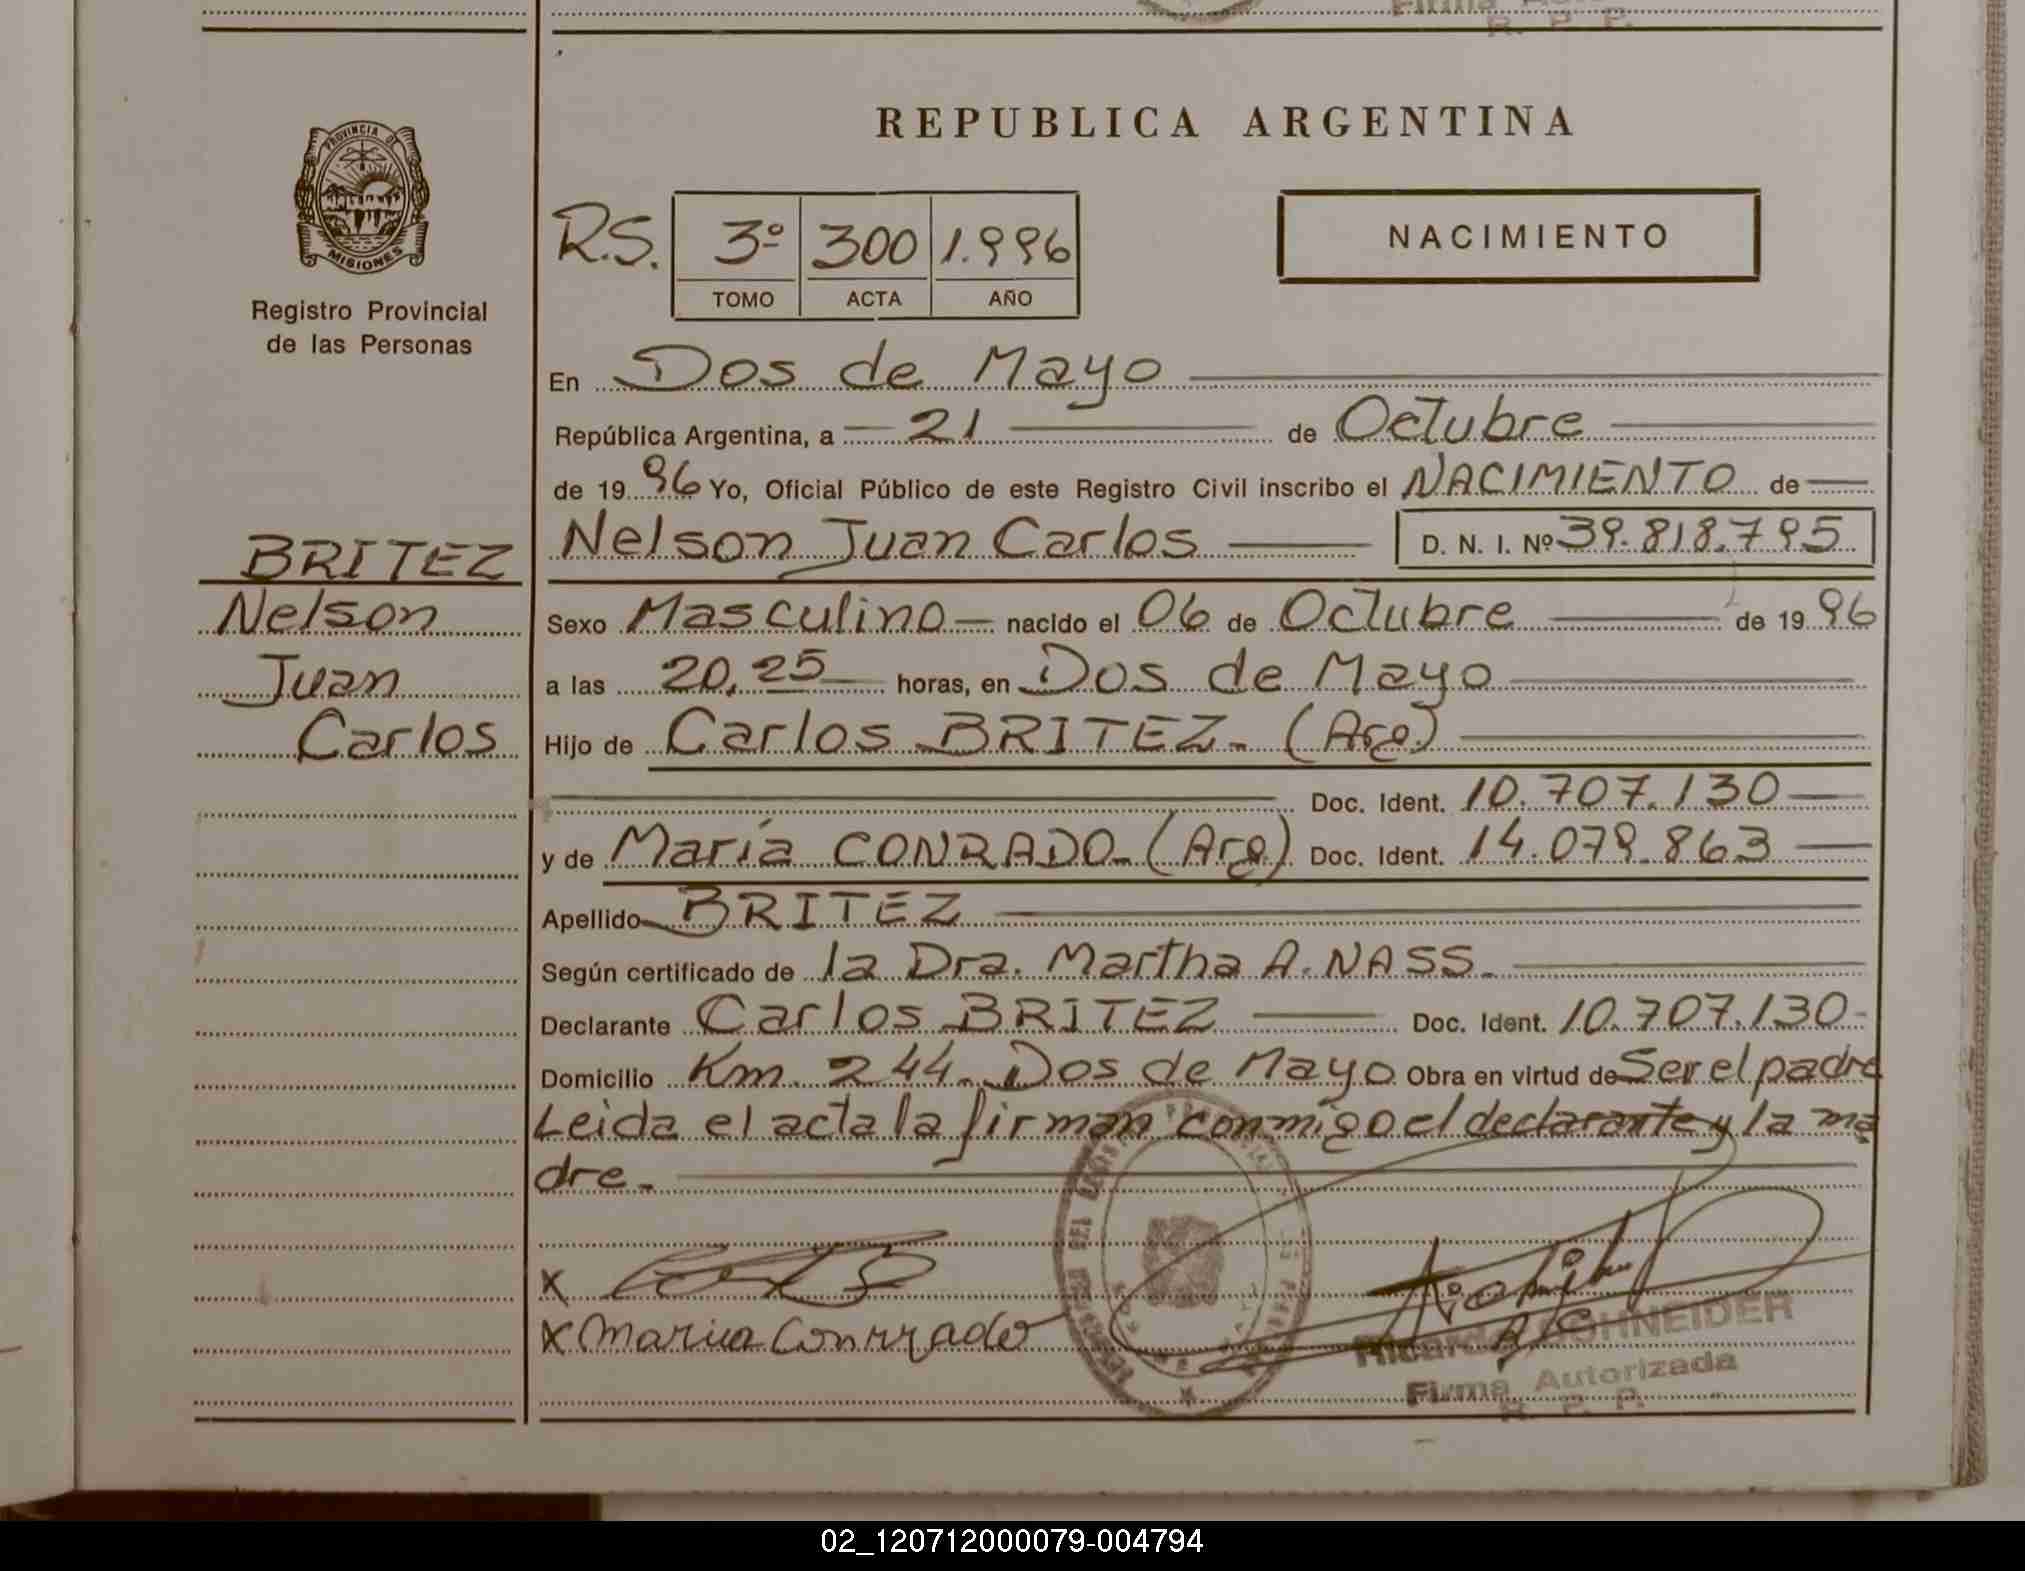 REPUBLICA ARGENTINA
PROVINCIA DE
MISIONES
Registro Provincial
de las Personas
R.S. 3º 300 1.996
TOMO ACTA AÑO
NACIMIENTO
En Dos de Mayo
República Argentina, a 21 de Octubre
de 1996 Yo, Oficial Público de este Registro Civil inscribo el NACIMIENTO de
Nelson Juan Carlos D. N. I. Nº 39.818.795
BRITEZ
Nelson
Juan
Carlos
Sexo Masculino nacido el 06 de Octubre de 1996
a las 20,25 horas, en Dos de Mayo
Hijo de Carlos BRITEZ. (Arg)
Doc. Ident. 10.707.130
y de María CONRADO. (Arg) Doc. Ident. 14.079.863
Apellido BRITEZ
Según certificado de la Dra. Martha A. NASS.
Declarante Carlos BRITEZ Doc. Ident. 10.707.130
Domicilio Km. 244. Dos de Mayo Obra en virtud de Ser el padre
Leida el acta la firman conmigo el declarante y la ma
dre.
X
X Maria Conrrado
Ricardo SCHNEIDER
Firma Autorizada
R. P. P.
02_120712000079-004794